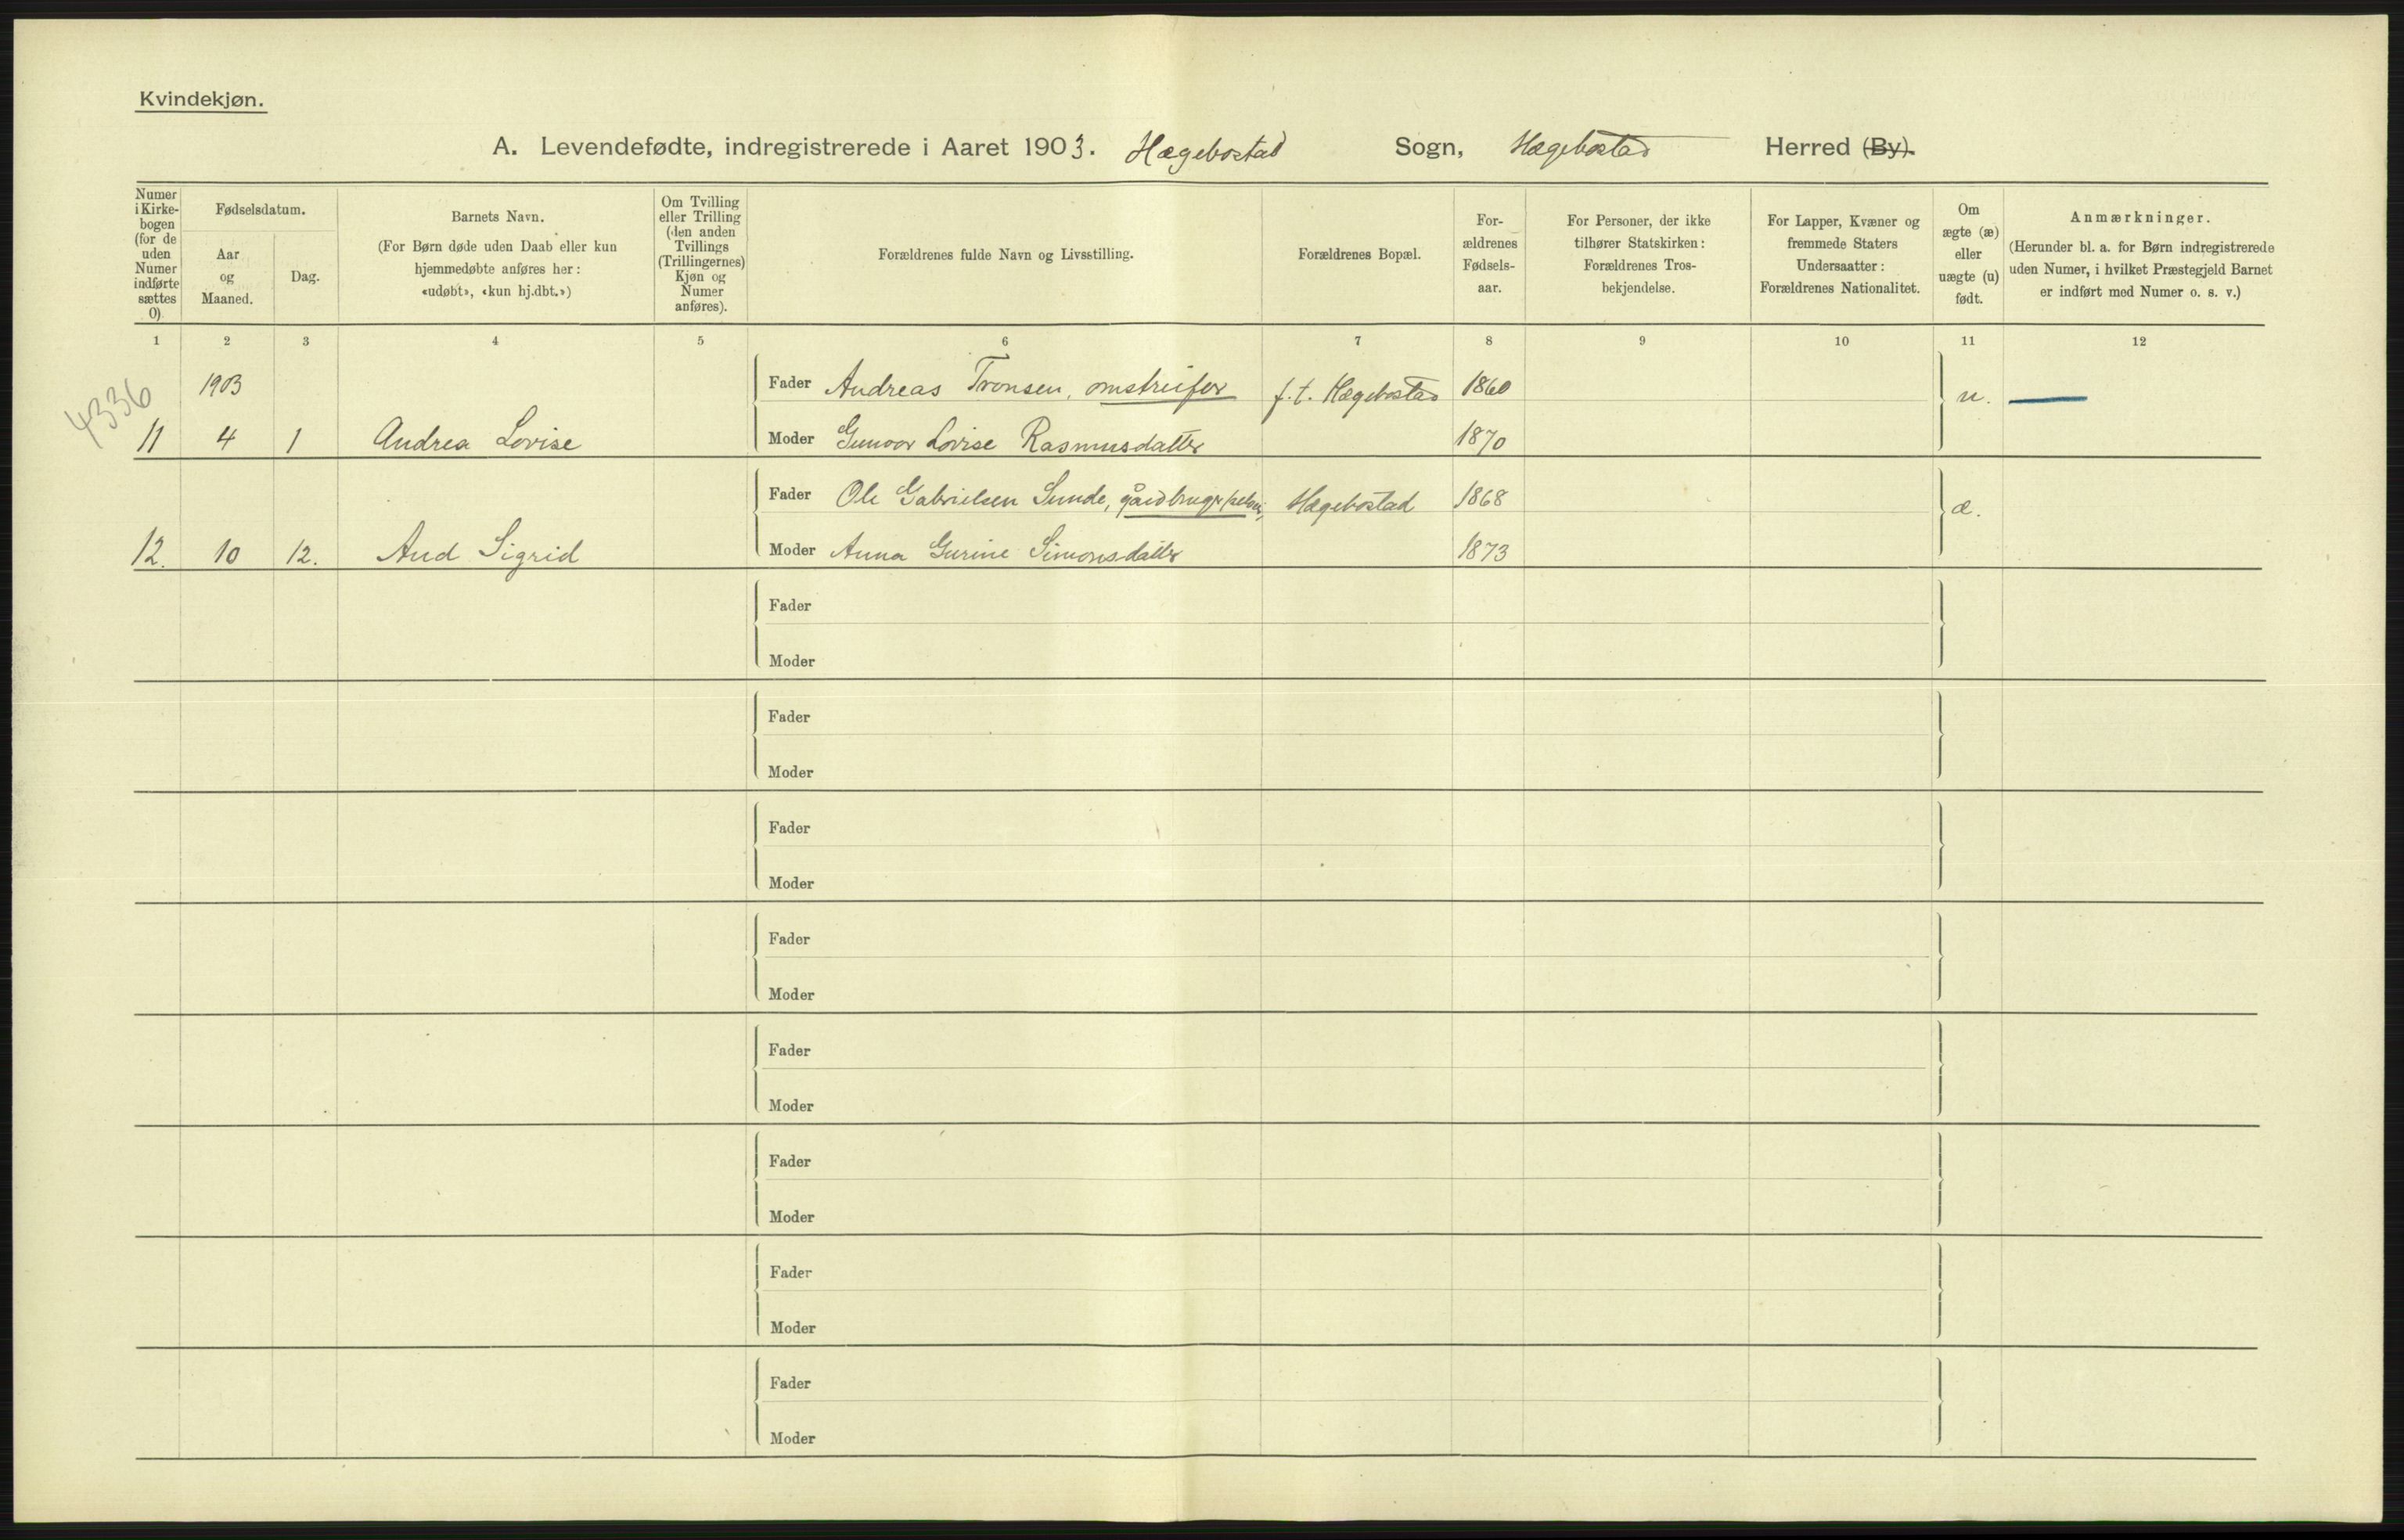 Kvindekjøn.
A. Levendefødte, indregistrerede i Aaret 1903. Hægebostad Sogn, Hægebostad Herred (By).
Numer i Kirke-bogen (for de uden Numer indførte sættes 0)
Fødselsdatum.
Aar og Maaned.
Dag.
Barnets Navn.
(For Børn døde uden Daab eller kun
hjemmedøbte anføres her:
«udøbt», «kun hj.dbt.»)
Om Tvilling
eller Trilling
(den anden
Tvillings
(Trillingernes)
Kjøn og
Numer
anføres).
Forældrenes fulde Navn og Livsstilling.
Forældrenes Bopæl.
For-
ældrenes
Fødsels-
aar.
For Personer, der ikke
tilhører Statskirken:
Forældrenes Tros-
bekjendelse.
For Lapper, Kvæner og
fremmede Staters
Undersaatter:
Forældrenes Nationalitet.
Om
ægte (æ)
eller
uægte (u)
født.
Anmærkninger.
(Herunder bl. a. for Børn indregistrerede
uden Numer, i hvilket Præstegjeld Barnet
er indført med Numer o. s. v.)
1 2 3 4 5 6 7 8 9 10 11 12
4336
1903 Fader Andreas Tronsen, omstreifer f. t. Hægebostad 1860 u.
11 4 1 Andrea Lovise Moder Gunvor Lovise Rasmusdatter 1870
Fader Ole Gabrielsen Sunde, gårdbruger Hægebostad 1868 æ.
12. 10 12. Aud Sigrid Moder Anna Gurine Simonsdatter 1873
Fader
Moder
Fader
Moder
Fader
Moder
Fader
Moder
Fader
Moder
Fader
Moder
Fader
Moder
Fader
Moder